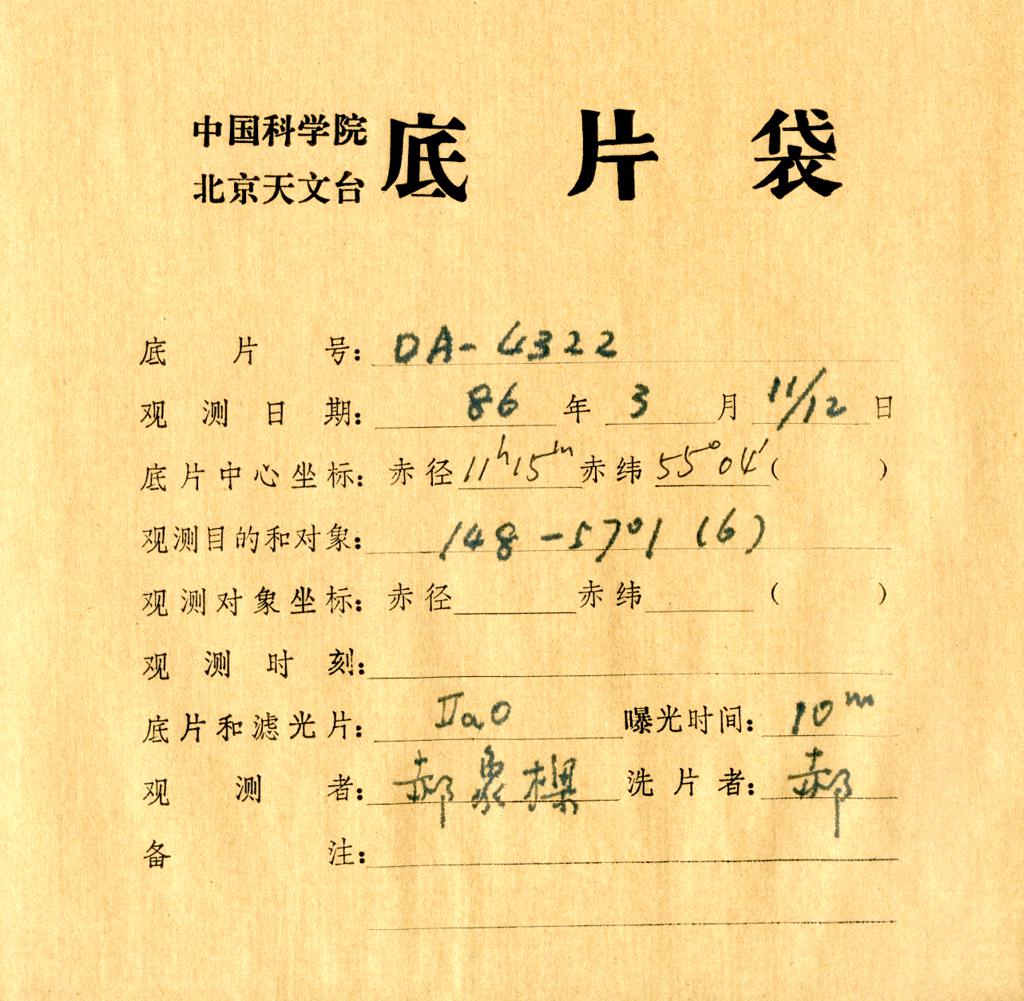 中国科学院
北京天文台
底片袋
底片号: DA-4322
观测日期: 86年3月11/12日
底片中心坐标: 赤径11h15m赤纬55°04′( )
观测目的和对象: 148-5701 (6)
观测对象坐标: 赤径 赤纬 ( )
观测时刻:
底片和滤光片: IIaO 曝光时间: 10m
观测者: 郝象樑 洗片者: 郝
备注: